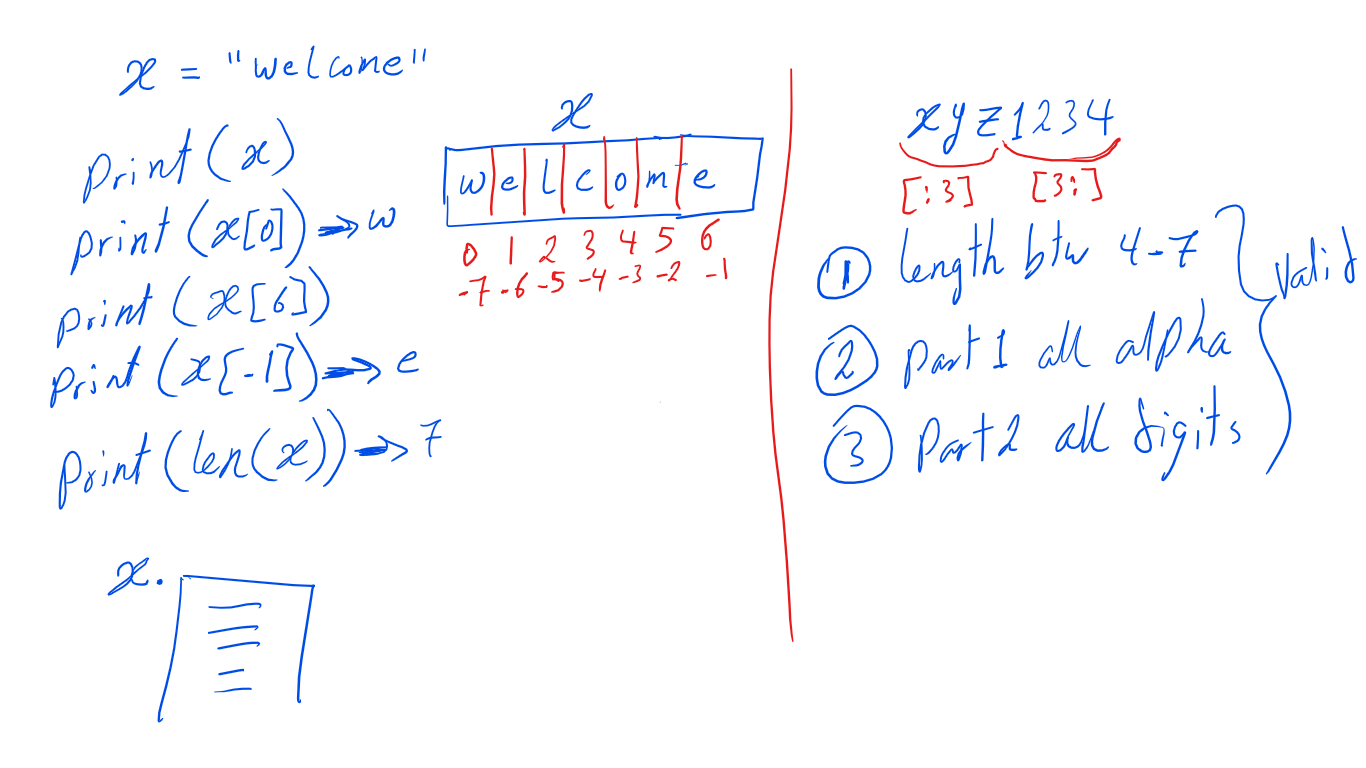 x = "welcome"
print(x)
print(x[0]) → w
print(x[6])
print(x[-1]) → e
print(len(x)) → 7
x.
x
w e l c o m e
0 1 2 3 4 5 6
-7 -6 -5 -4 -3 -2 -1
xyz1234
[:3] [3:]
① length btw 4-7
② part1 all alpha
③ Part2 all digits
valid